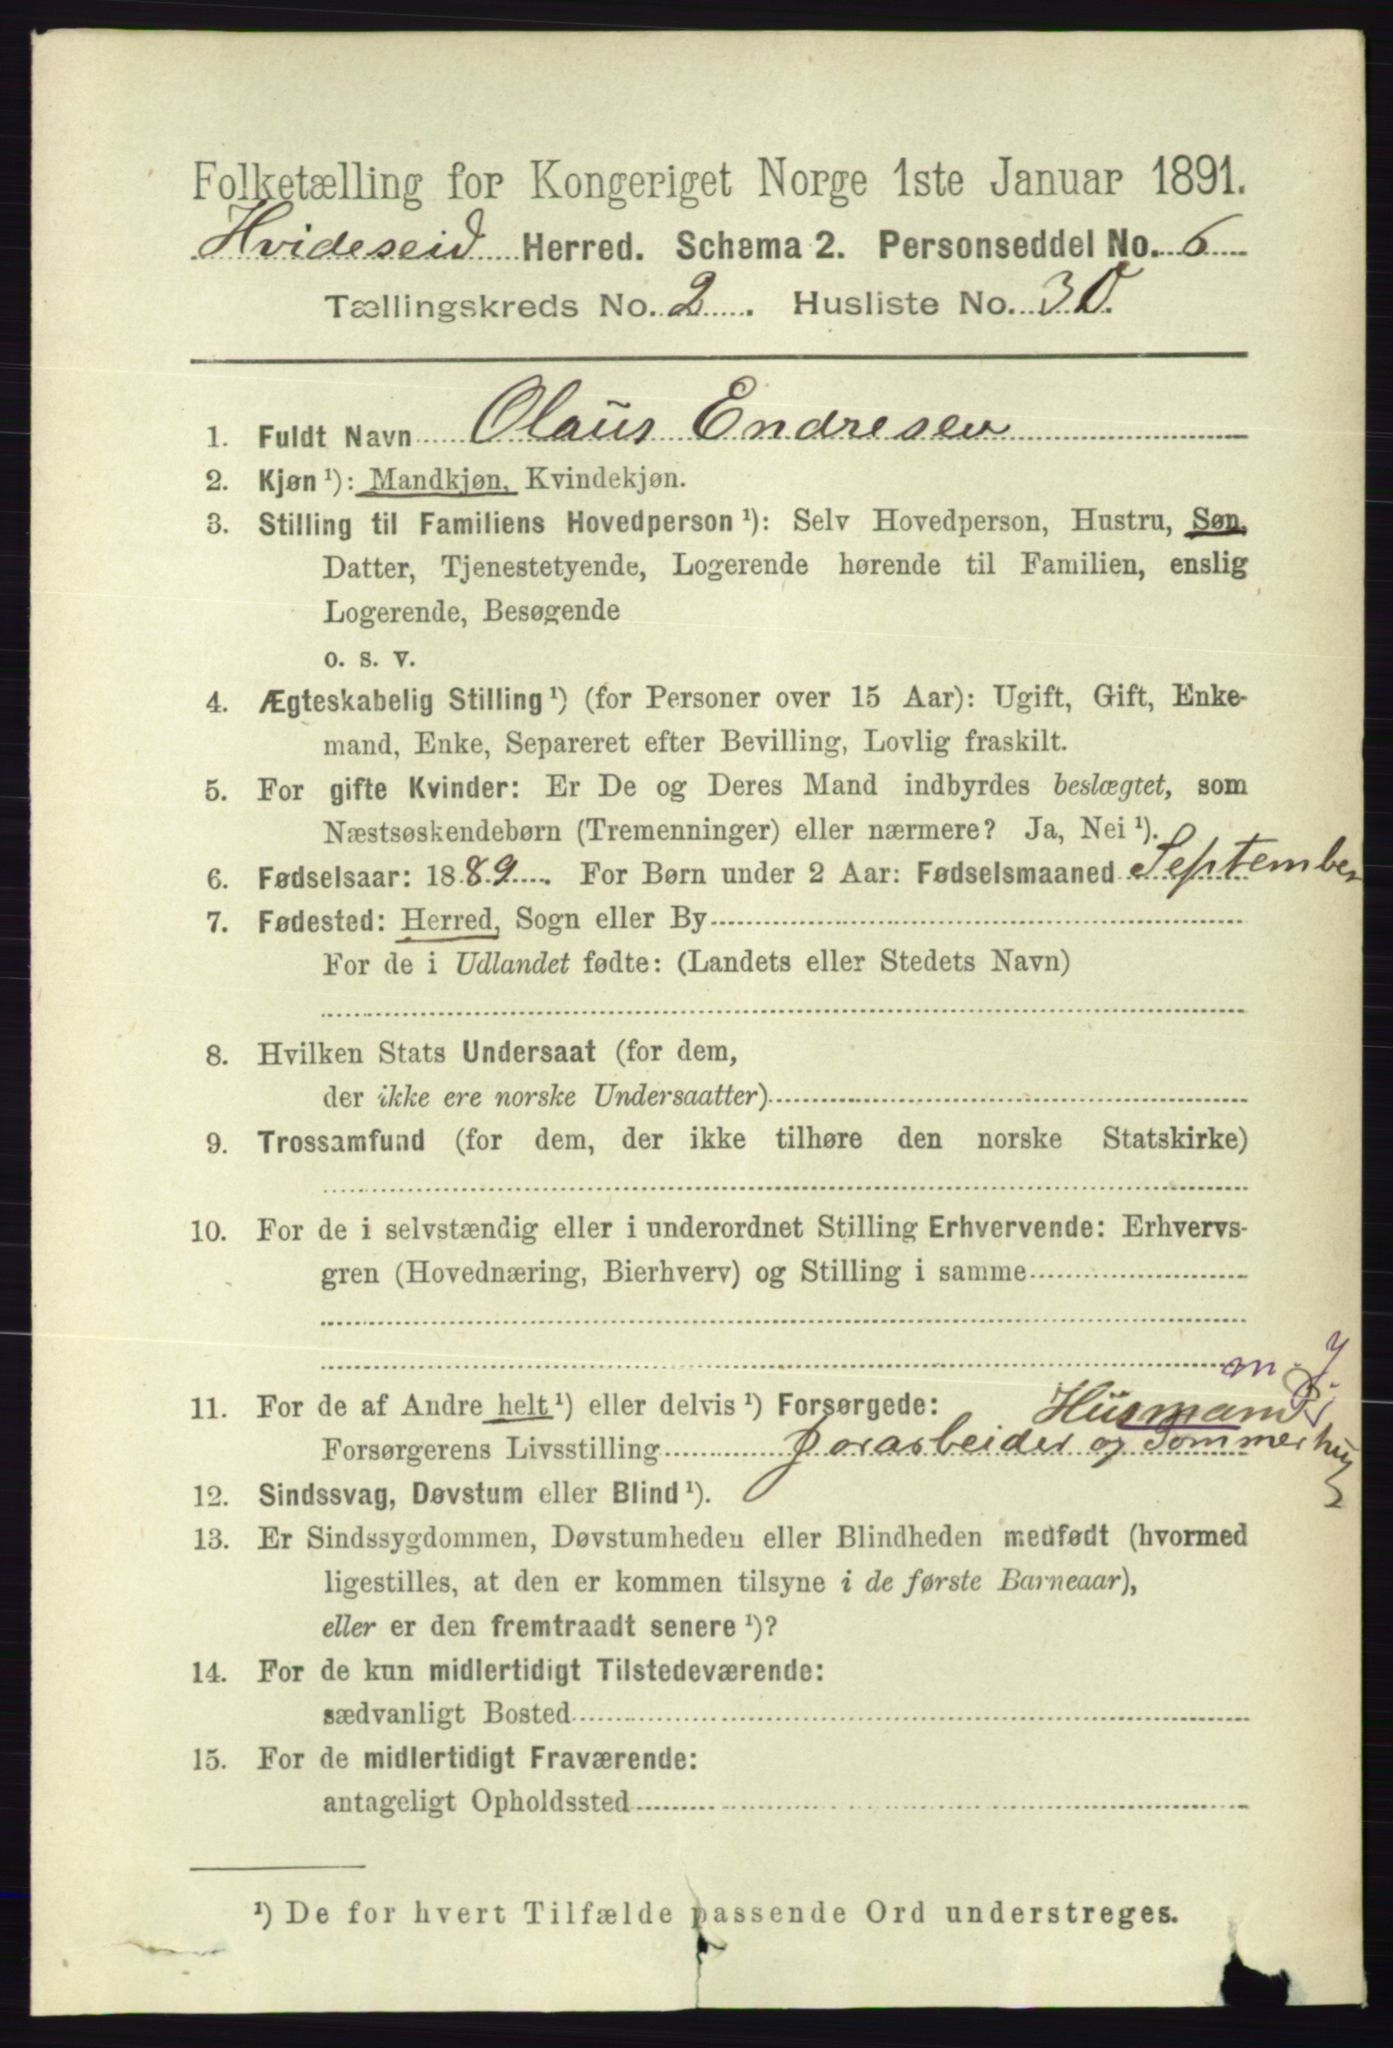 Folketælling for Kongeriget Norge 1ste Januar 1891.
Hvideseid Herred. Schema 2. Personseddel No. 6
Tællingskreds No. 2. Husliste No. 30.
1. Fuldt Navn Olaus Endresen
2. Kjøn ¹): Mandkjøn, Kvindekjøn.
3. Stilling til Familiens Hovedperson ¹): Selv Hovedperson, Hustru, Søn,
Datter, Tjenestetyende, Logerende hørende til Familien, enslig
Logerende, Besøgende
o. s. v.
4. Ægteskabelig Stilling ¹) (for Personer over 15 Aar): Ugift, Gift, Enke-
mand, Enke, Separeret efter Bevilling, Lovlig fraskilt.
5. For gifte Kvinder: Er De og Deres Mand indbyrdes beslægtet, som
Næstsøskendebørn (Tremenninger) eller nærmere? Ja, Nei ¹).
6. Fødselsaar: 1889. For Børn under 2 Aar: Fødselsmaaned September
7. Fødested: Herred, Sogn eller By
For de i Udlandet fødte: (Landets eller Stedets Navn)
8. Hvilken Stats Undersaat (for dem,
der ikke ere norske Undersaatter)
9. Trossamfund (for dem, der ikke tilhøre den norske Statskirke)
10. For de i selvstændig eller i underordnet Stilling Erhvervende: Erhvervs-
gren (Hovednæring, Bierhverv) og Stilling i samme
m. J.
11. For de af Andre helt ¹) eller delvis ¹) Forsørgede: Husmand
Forsørgerens Livsstilling Jorarbeider og Tømmerhug
12. Sindssvag, Døvstum eller Blind ¹).
13. Er Sindssygdommen, Døvstumheden eller Blindheden medfødt (hvormed
ligestilles, at den er kommen tilsyne i de første Barneaar),
eller er den fremtraadt senere ¹)?
14. For de kun midlertidigt Tilstedeværende:
sædvanligt Bosted
15. For de midlertidigt Fraværende:
antageligt Opholdssted
¹) De for hvert Tilfælde passende Ord understreges.